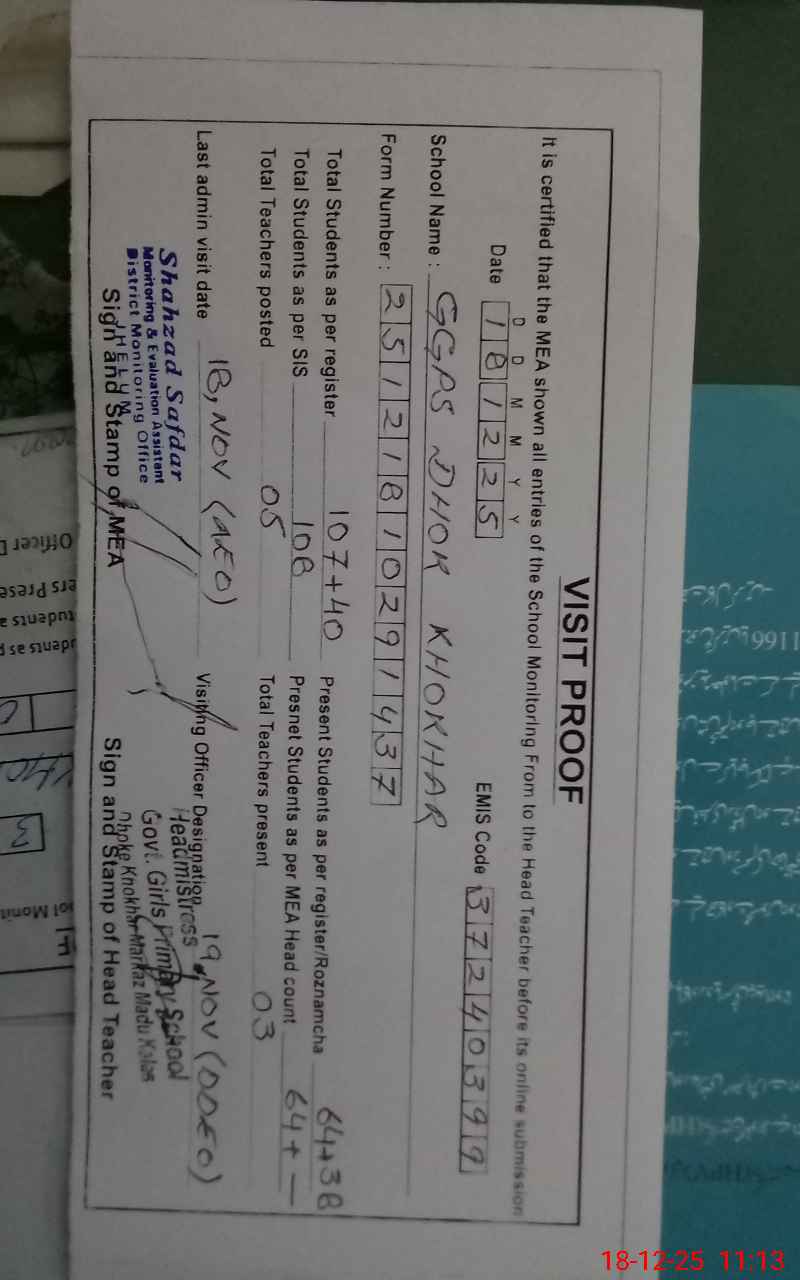 VISIT PROOF
It is certified that the MEA shown all entries of the School Monitoring From to the Head Teacher before its online submission
D D M M Y Y
Date 181225 EMIS Code 37240399
School Name : GGPS DHOK KHOKHAR
Form Number : 25121810291437
Total Students as per register 107+40 Present Students as per register/Roznamcha 64+38
Total Students as per SIS 108 Presnet Students as per MEA Head count 64+ —
Total Teachers posted 05 Total Teachers present 03
Last admin visit date 18, NOV (AEO) Visiting Officer Designation 19, NOV (DDEO)
Shahzad Safdar
Monitoring & Evaluation Assistant
District Monitoring Office
JHELUM
Sign and Stamp of MEA
Headmistress
Govt. Girls Primary School
Dhoke Khokhar Markaz Madu Kalas
Sign and Stamp of Head Teacher
Officer
ers Prese
tudents a
udents as p
ol Monit
18-12-25 11:13